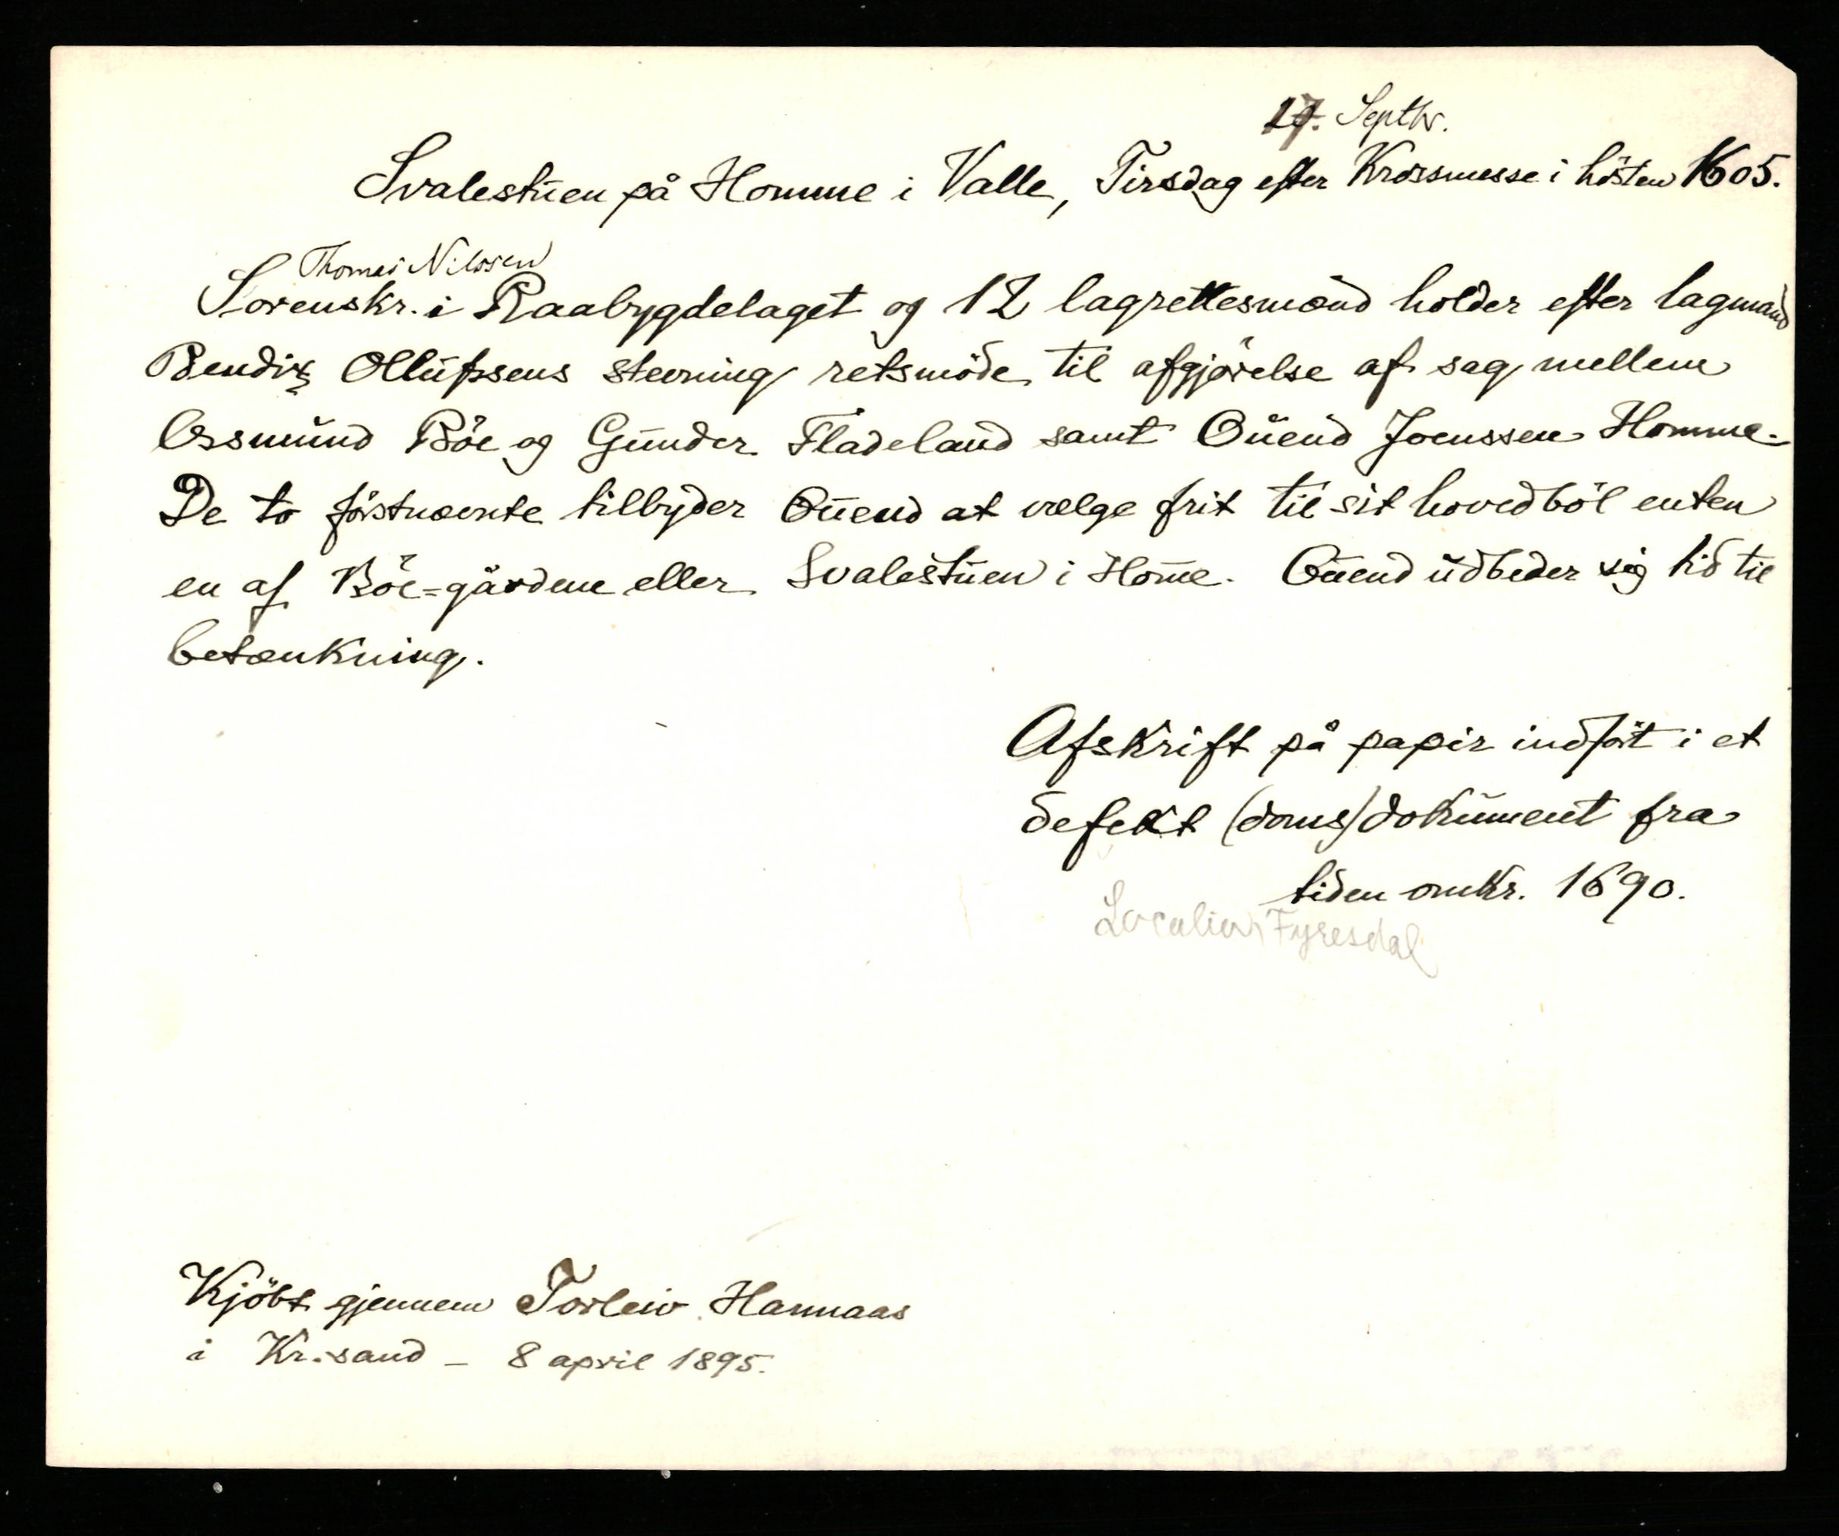 17. Septbr.
Svalestuen på Homme i Valle, Tirsdag efter Krossmesse i hösten 1605.
Thomas Nilssen
Sorenskr. i Raabygdelaget og 12 lagrettesmænd holder efter lagmand
Bendix Ollufssens stevning retsmöde til afgjörelse af sag mellem
Ossmund Böe og Gunder Fladeland samt Ouend Joenssen Homme.
De to förstnævnte tilbyder Ouend at vælge frit til sit hovedböl enten
en af Böe=gårdene eller Svalestuen i Hom̄e. Ouend udbeder sig tid til
betænkning.
Afskrift på papir indfört i et
defekt (doms)dokument fra
tiden omkr. 1690.
Fyresdal
Kjöbt gjennem Torleiv Hannaas
i Kr.sand – 8 april 1895.